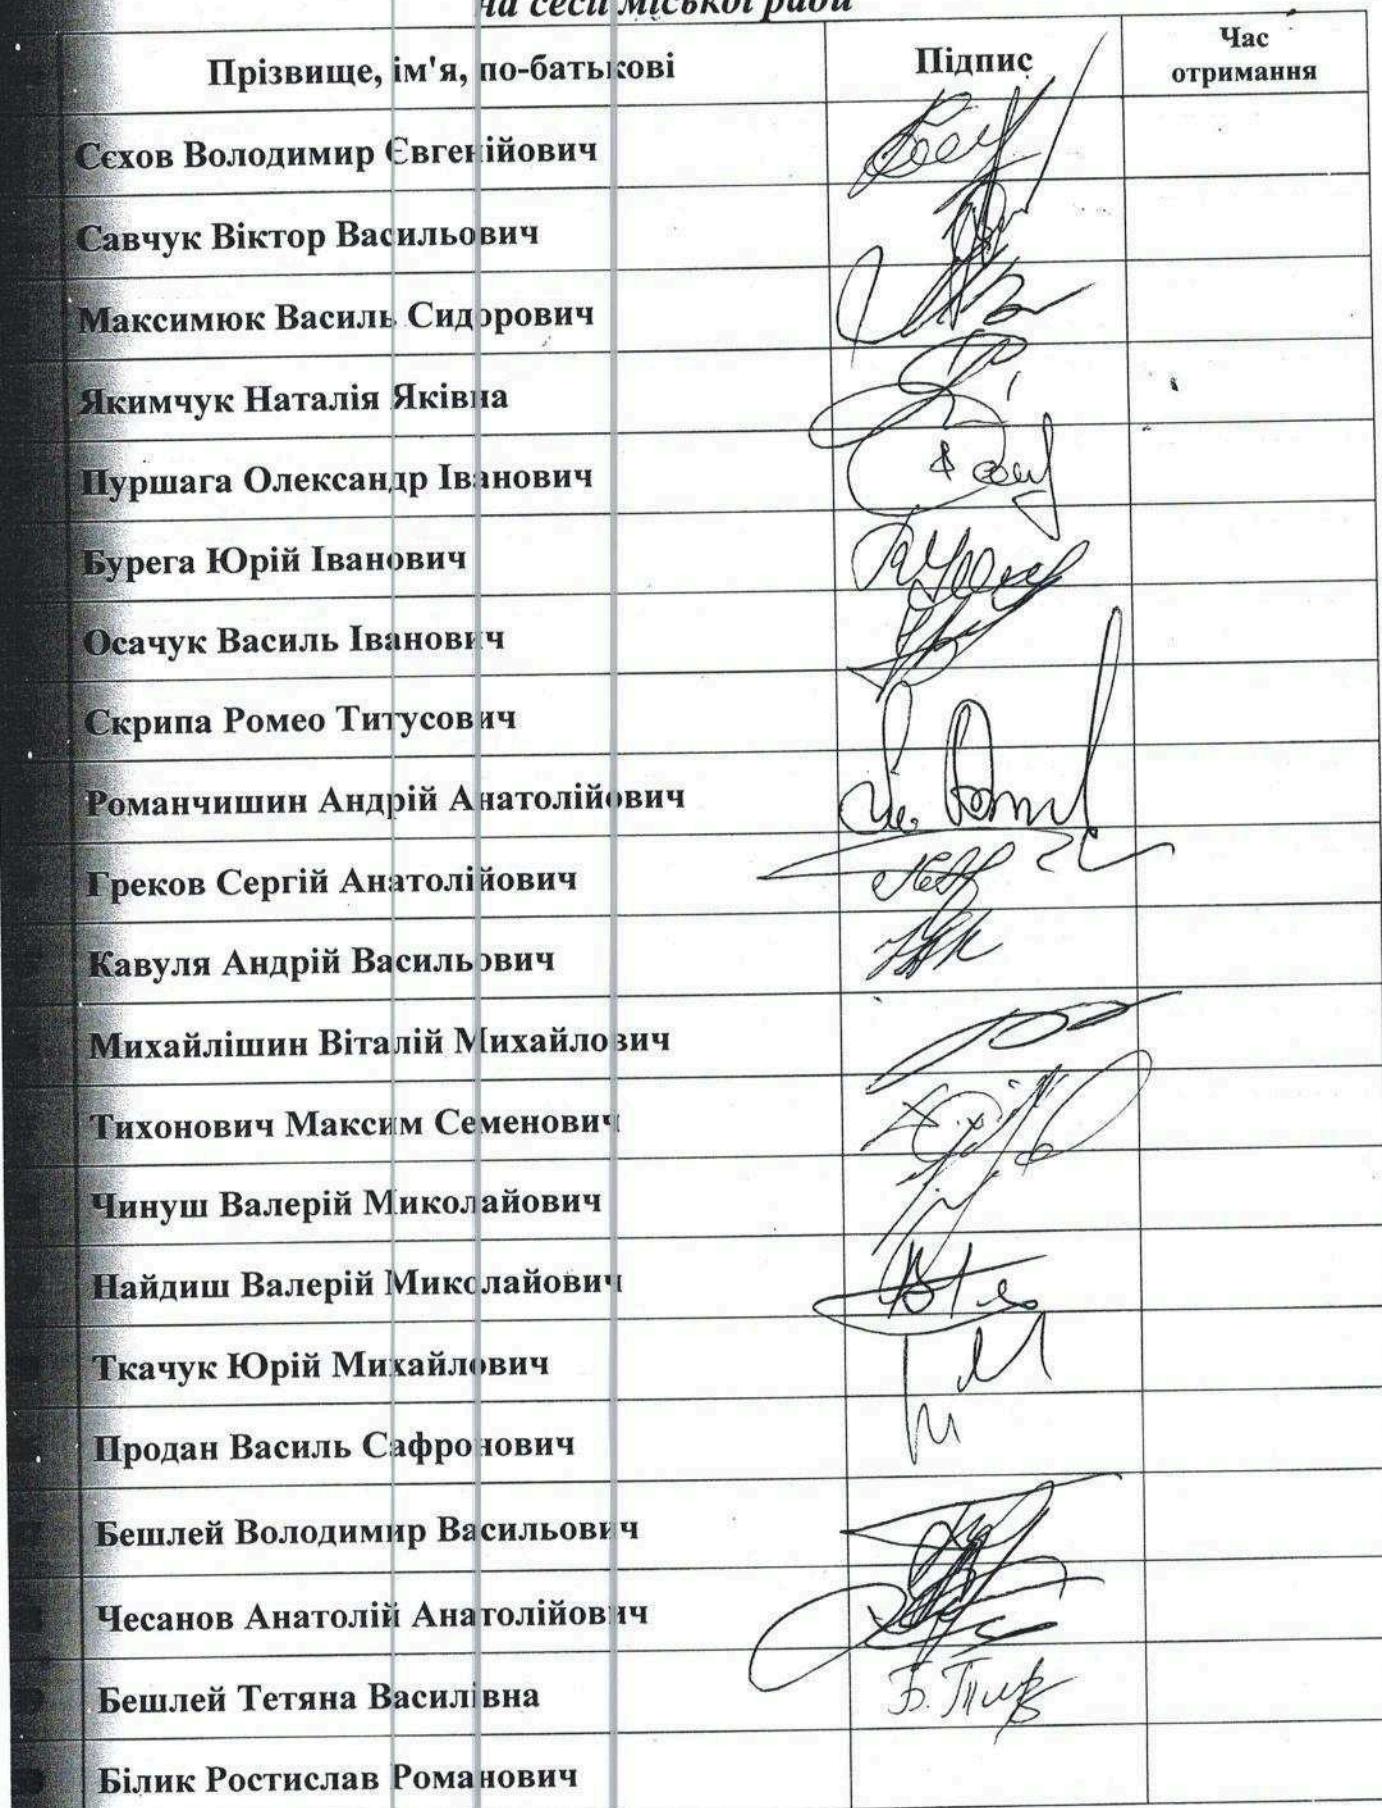 на сесії міської ради
Прізвище, ім'я, по-батькові Підпис Час отримання
Сєхов Володимир Євгенійович
Савчук Віктор Васильович
Максимюк Василь Сидорович
Якимчук Наталія Яківна
Пуршага Олександр Іванович
Бурега Юрій Іванович
Осачук Василь Іванович
Скрипа Ромео Титусович
Романчишин Андрій Анатолійович
Греков Сергій Анатолійович
Кавуля Андрій Васильович
Михайлішин Віталій Михайлович
Тихонович Максим Семенович
Чинуш Валерій Миколайович
Найдиш Валерій Миколайович
Ткачук Юрій Михайлович
Продан Василь Сафронович
Бешлей Володимир Васильович
Чесанов Анатолій Анатолійович
Бешлей Тетяна Василівна
Білик Ростислав Романович